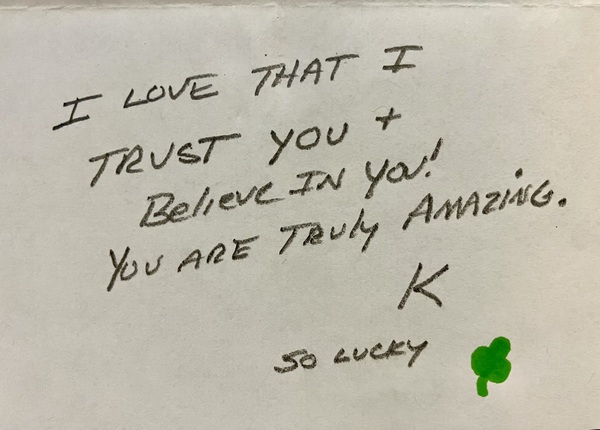 I LOVE THAT I
TRUST YOU +
Believe IN YOU!
YOU ARE TRuly AMAZING.
K
SO LUCKY